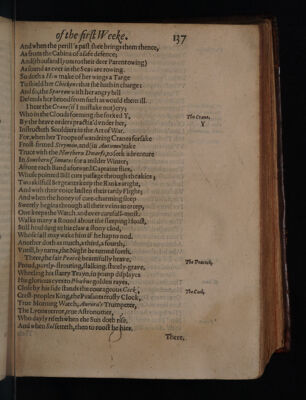 of the first Weeke. 137
And when the perill's past shee brings them thence,
As from the Cabins of a safe defence;
And (thousand lyons to their deer Parent owing)
As sound as ever in the Seas are rowing.
So doth a Hen make of her wings a Targe
To shield her Chickens that she hath in charge:
And so, the Sparrow with her angry bill
Defends her brood from such as would them ill.
I hear the Crane (if I mistake not) cry;
The Crane.
Y
Who in the Clouds forming the forked Y,
By the brave orders practiz'd under her,
Instructeth Souldiers in the Art of War.
For, when her Troops of wandring Cranes forsake
Frost-firmed Strymon, and (in Autumn) take
Truce with the Northern Dwarfs, to seek adventure
In Southern Climates for a milder Winter;
Afront each Band a forward Captain flies,
Whose pointed Bill cuts passage through the skies;
Two skilfull Sergeants keep the Ranks aright,
And with their voice hasten their tardy Flight;
And when the honey of care-charming sleep
Sweetly begins through all their veins to creep,
One keeps the Watch, and ever carefull-most,
Walks many a Round about the sleeping Hoast,
Still holding in his claw a stony clod,
Whose fall may wake him if he hap to nod.
Another doth as much, a third, a fourth,
Untill, by turns, the Night be turned forth.
There, the fair Peacock beautifully brave,
The Peacock.
Proud, portly-strouting, stalking, stately-grave,
Wheeling his starry Trayn, in pomp displayes
His glorious eyes to Phœbus golden rayes.
Close by his side stands the couragious Cock,
The Cock.
Crest-peoples King, the Peasants trusty Clock,
True Morning Watch, Aurora's Trumpeter,
The Lyons terror, true Astronomer,
Who daily riseth when the Sun doth rise,
And when Sol setteth, then to roost he hies.
There,